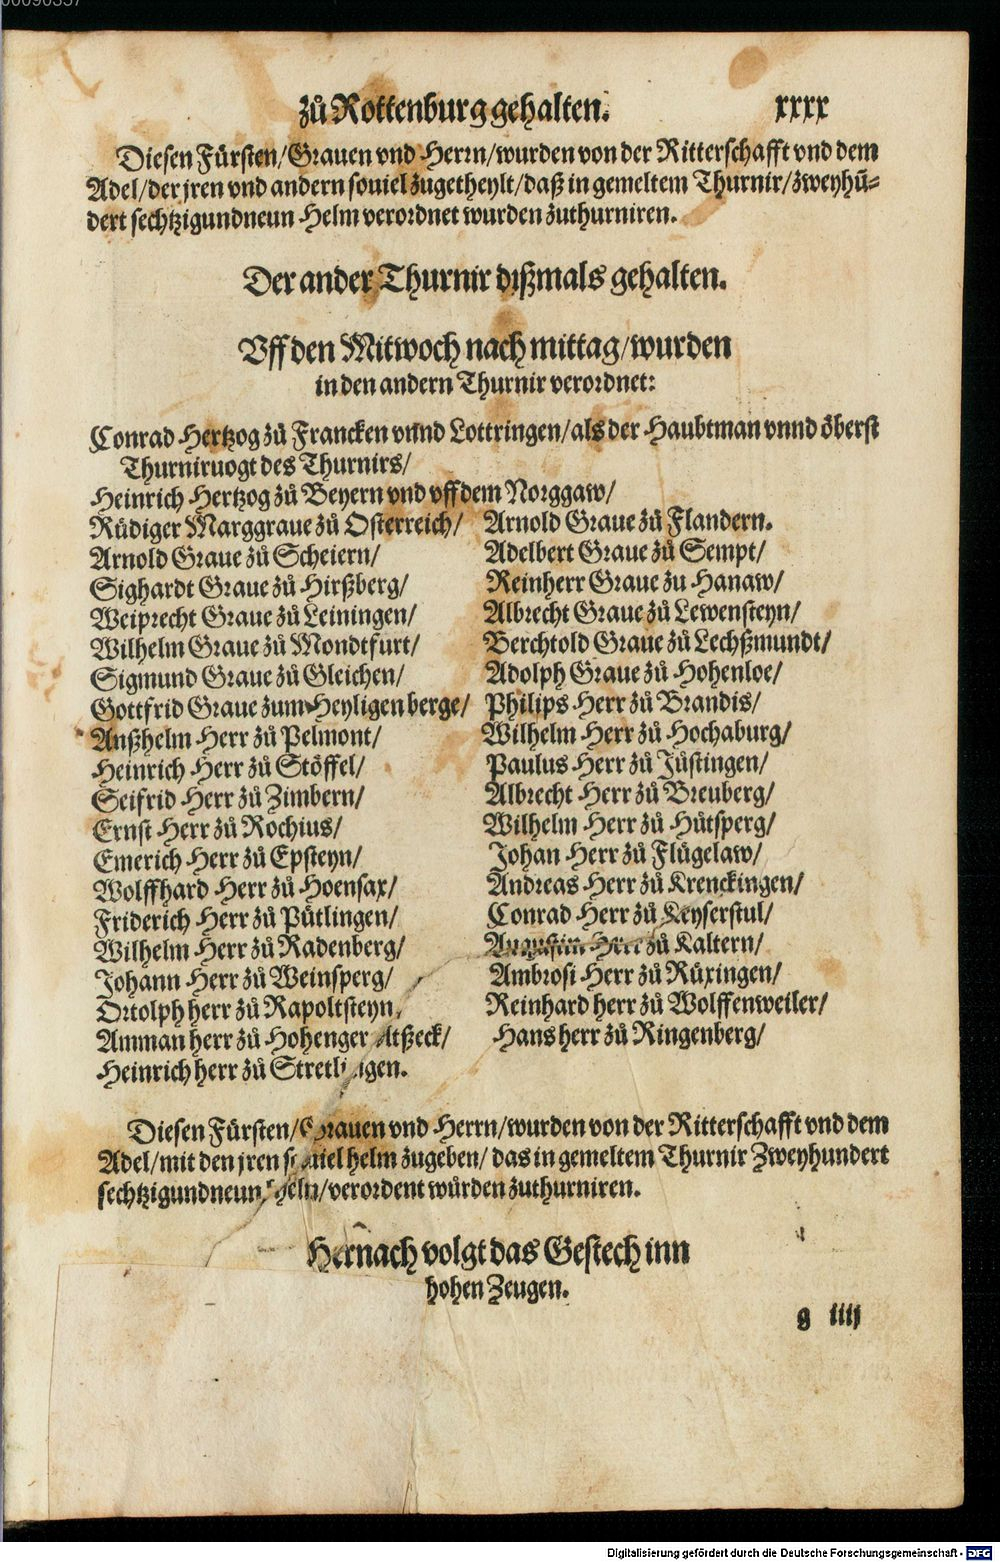 zů Rottenburg gehalten. xxxx
Diesen Fürsten/Grauen vnd Herrn/wurden von der Ritterschafft vnd dem
Adel/der jren vnd andern souiel zugetheylt/daß in gemeltem Thurnir/zweyhū-
dert sechtzigundneun Helm verordnet wurden zuthurniren.
Der ander Thurnir dißmals gehalten.
Vff den Mitwoch nach mittag/wurden
in den andern Thurnir verordnet:
Conrad Hertzog zů Francken vnnd Lottringen/als der Haubtman vnnd öberst
Thurniruogt des Thurnirs/
Heinrich Hertzog zů Beyern vnd vff dem Norggaw/
Rüdiger Marggraue zů Osterreich/
Arnold Graue zů Scheiern/
Sighardt Graue zů Hirßberg/
Weiprecht Graue zů Leiningen/
Wilhelm Graue zů Mondtfurt/
Sigmund Graue zů Gleichen/
Gottfrid Graue zum Heyligenberge/
Anßhelm Herr zů Pelmont/
Heinrich Herr zů Stöffel/
Seifrid Herr zů Zimbern/
Ernst Herr zů Rochius/
Emerich Herr zů Epsteyn/
Wolffhard Herr zů Hoensax/
Friderich Herr zů Pütlingen/
Wilhelm Herr zů Radenberg/
Johann Herr zů Weinsperg/
Ortolph herr zů Rapoltsteyn,
Amman herr zů Hohenger Atßeck/
Heinrich herr zů
Arnold Graue zů Flandern.
Adelbert Graue zů Sempt/
Reinherr Graue zu Hanaw/
Albrecht Graue zů Lewensteyn/
Berchtold Graue zů Lechßmundt/
Adolph Graue zů Hohenloe/
Philips Herr zů Brandis/
Wilhelm Herr zů Hochaburg/
Paulus Herr zů Jüstingen/
Albrecht Herr zů Breuberg/
Wilhelm Herr zů Hütsperg/
Johan Herr zů Flügelaw/
Andreas Herr zů Krenckingen/
Conrad Herr zů Keyserstul/
Augustin Herr zů Kaltern/
Ambrosi Herr zů Rüxingen/
Reinhard herr zů Wolffenweiler/
Hans herr zů Ringenberg/
Diesen Fürsten/Grauen vnd Herrn/wurden von der Ritterschafft vnd dem
Adel/mit den jren souiel helm zugeben/das in gemeltem Thurnir Zweyhundert
sechtzigundneun helm/verordent würden zuthurniren.
Hernach volgt das Gestech inn
hohen Zeugen.
g iiij
Digitalisierung gefördert durch die Deutsche Forschungsgemeinschaft - DFG